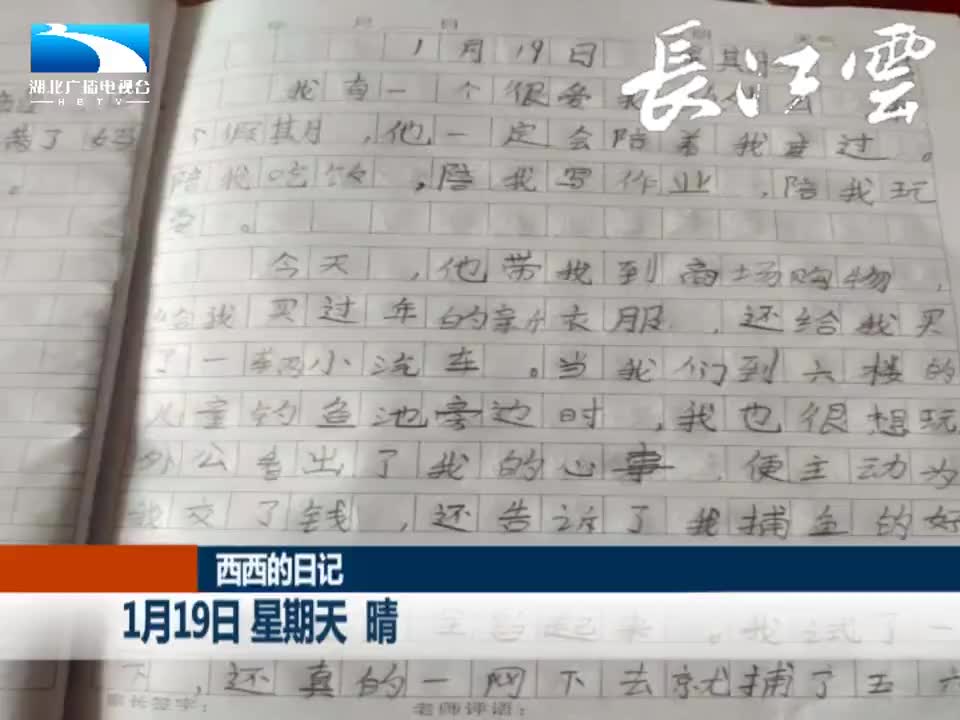 年 月 日
湖北广播电视台
HBTV
長江雲
1月19日 星期
我有一个很爱我
带了 妈
个假期，他一定会陪着我度过。
陪我吃饭，陪我写作业，陪我玩
。
。
今天，他带我到商场购物，
给我买过年的新衣服，还给我买
了一辆小汽车。当我们到六楼的
儿童钓鱼池旁边时，我也很想玩
外公看出了我的心事，便主动为
我交了钱，还告诉了我捕鱼的好
西西的日记
1月19日 星期天 晴
起来。我试了一
下，还真的一网下去就捕了五六
家长签字：
老师评语：